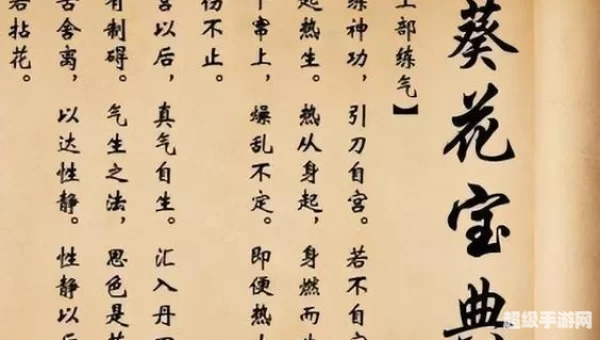 葵花宝典
上部练气】
练神功，引刀自宫。若不自
起热生。热从身起，身燃而生
下窜上，燥乱不定。即便热
伤不止。
宫以后，真气自生。汇入丹
有制碍。气生之法，思色是
舍离，以达性静。性静以后
若拈花。
超级手游网